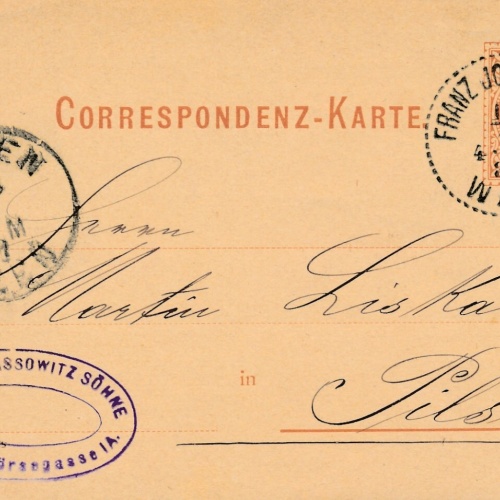 CORRESPONDENZ-KARTE
FRANZ JO
Herrn
Martin Liska
in Pils
SSOWITZ SÖHNE
örsegasse 1A.